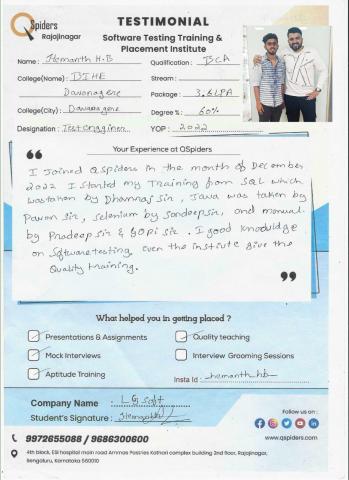 QSpiders
Rajajinagar
TESTIMONIAL
Software Testing Training &
Placement Institute
Name : Hemanth H.B
Qualification : BCA
College(Name) : BIHE
Stream :
Davanagere
Package : 3.6 LPA
College(City) : Davanagere
Degree % : 60%
Designation : Test engginer
YOP : 2022
Your Experience at QSpiders
I Joined QSpiders in the month of December
2022 I started my Training from SQL which
was taken by Dhanraj sir, Java was taken by
Pavan sir, selenium by Sandeep sir, and manual
by Pradeep sir & Gopi sir. I good knowldge
on Software testing, even the institute give the
Quality training.
What helped you in getting placed ?
Presentations & Assignments
Quality teaching
Mock Interviews
Interview Grooming Sessions
Aptitude Training
Insta Id : hemanth_hb
Company Name : LG soft
Student's Signature :
Follow us on :
www.qspiders.com
9972655088 / 9686300600
4th block, ESI hospital main road Ammas Pastries Kothari complex building 2nd floor, Rajajinagar,
Bengaluru, Karnataka 560010